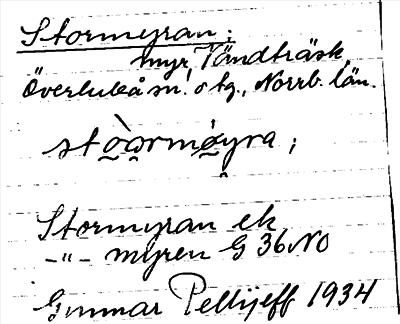 Stormyran:
myr, Vändträsk,
Överluleå sn. o tg., Norrb. län.
stòormøyra;
Stormyran ek
-"- myren G 36 NO
Gunnar Pellijeff 1934